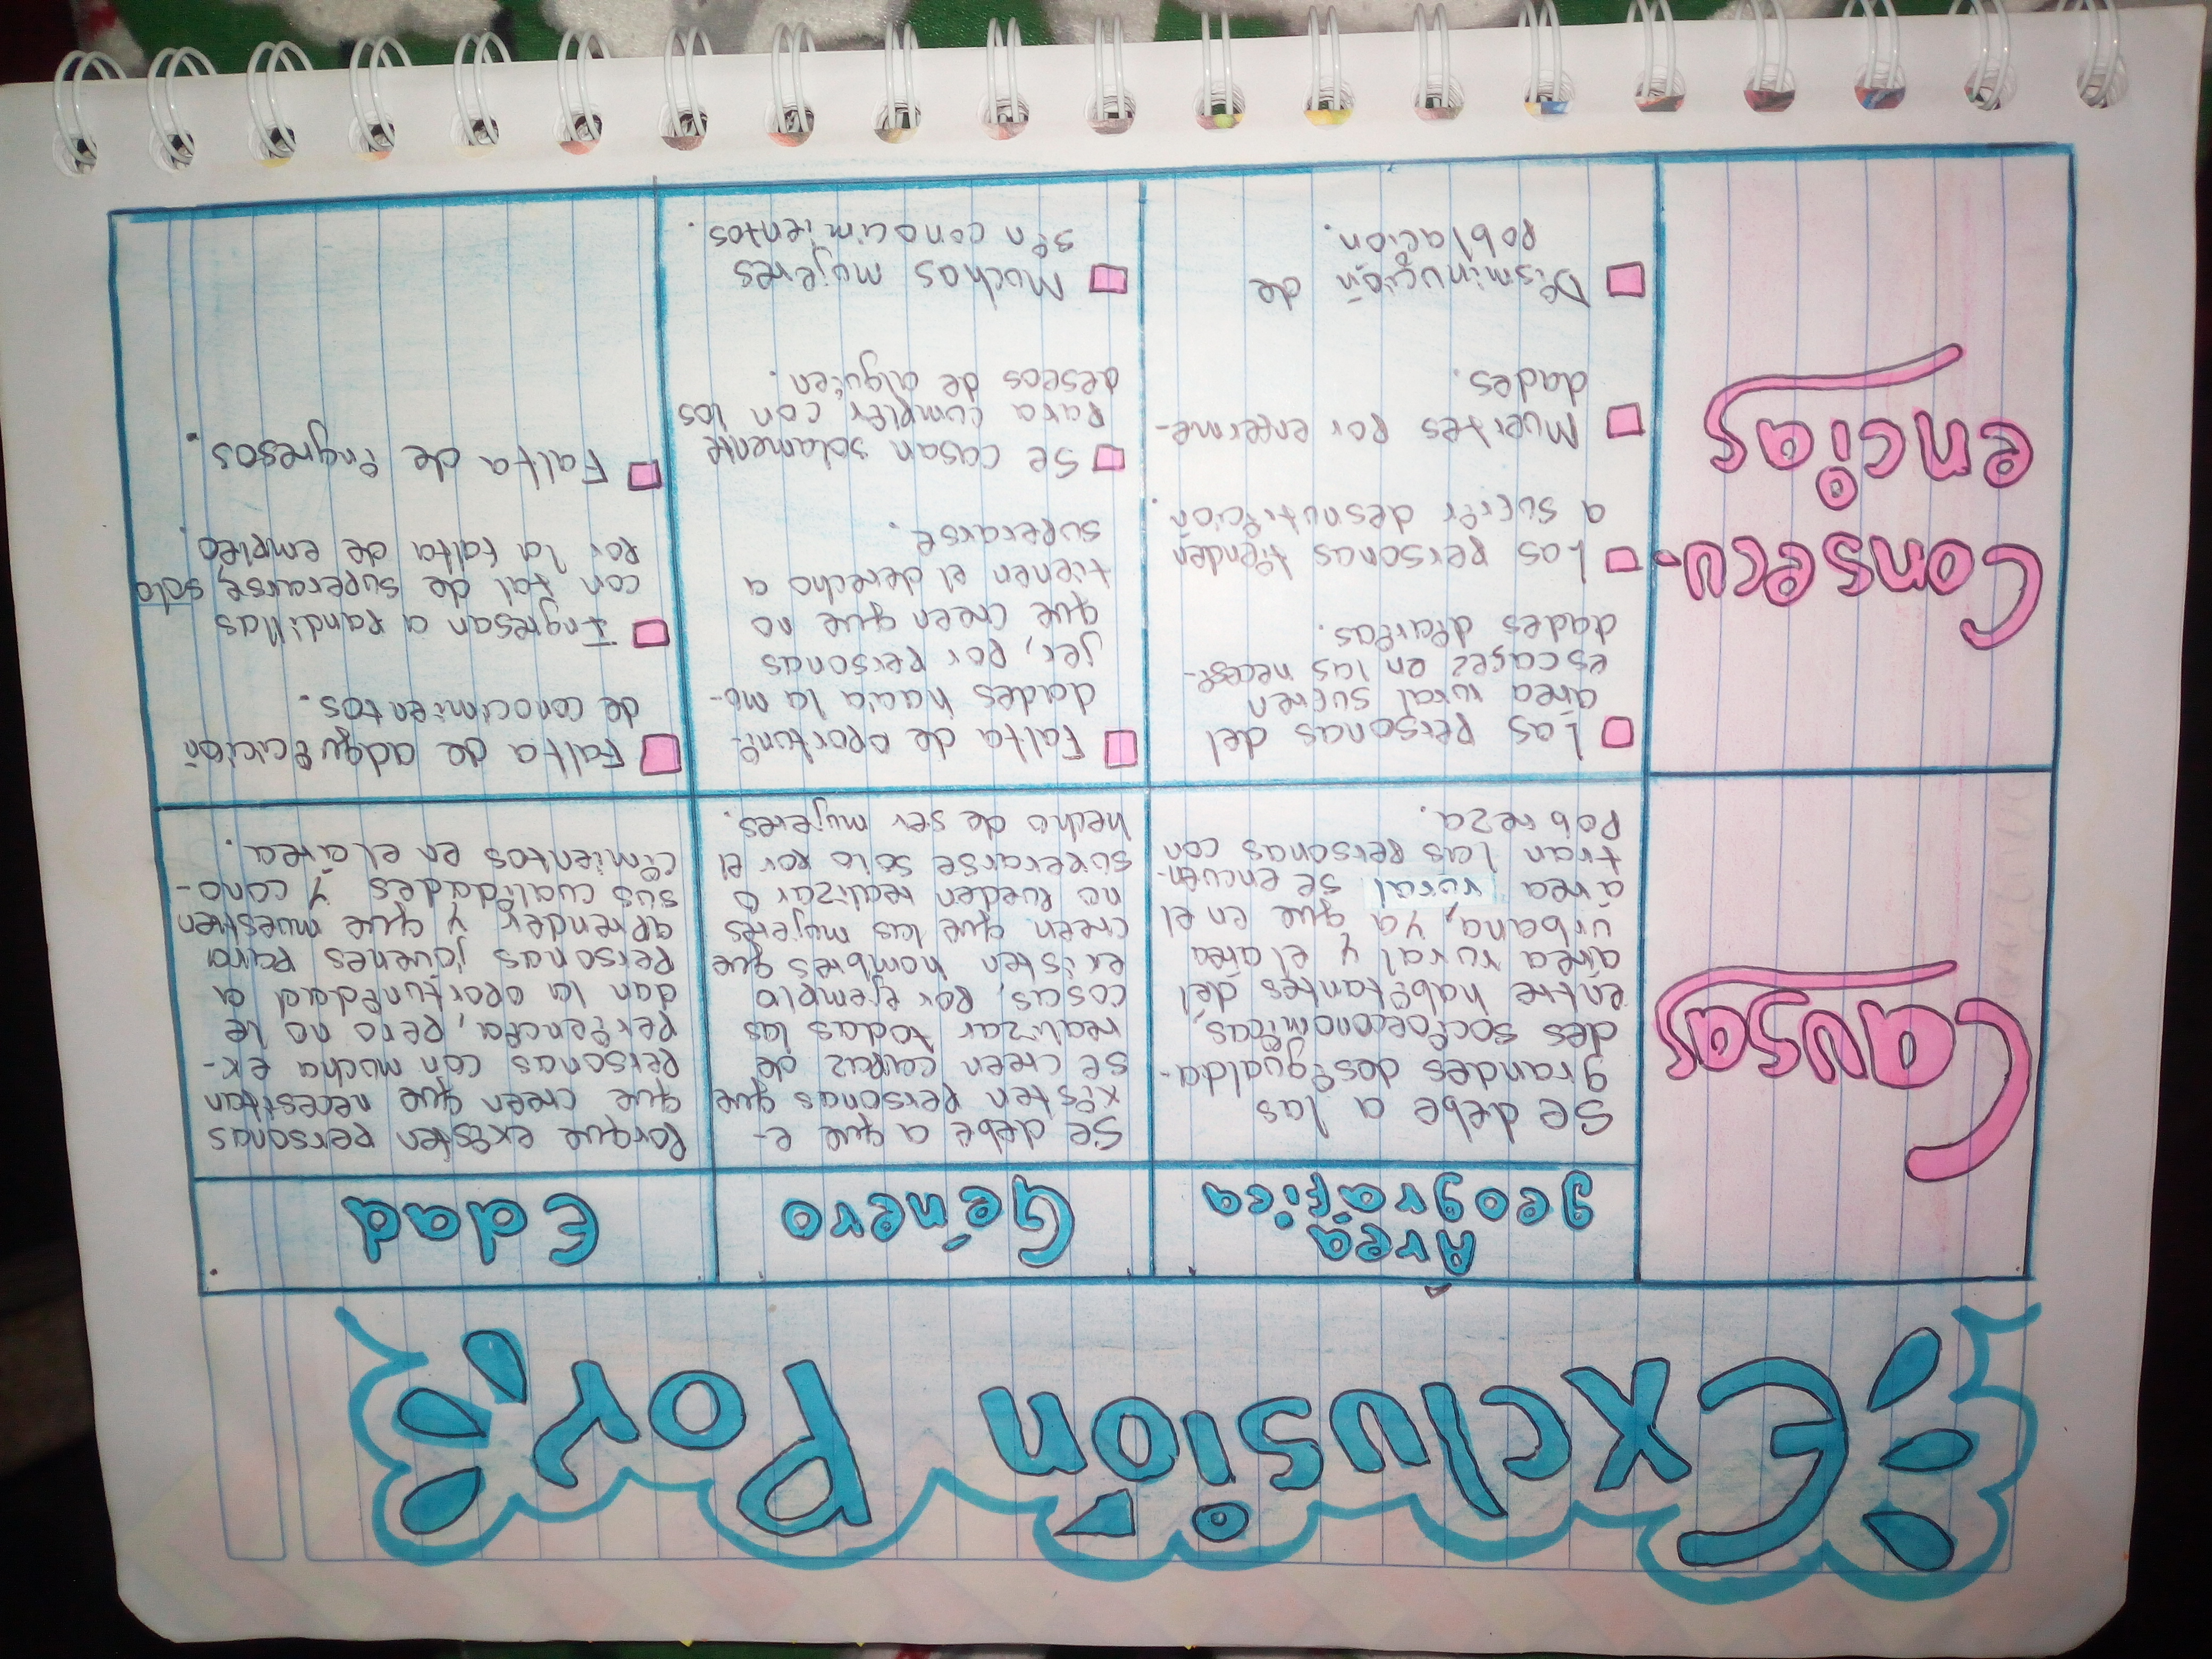 Exclusión Por:
Área
geográfica
Género
Edad
Causas
Se debe a las
grandes desigualda-
des socioeconómicas,
entre habitantes del
área rural y el area
urbana, ya que en el
área rural se encuen-
tran las personas con
Pobreza.
Se debe a que e-
xisten personas que
se creen capaz de
realizar todas las
cosas, por ejemplo
existen hombres que
creen que las mujeres
no pueden realizar o
superarse solo por el
hecho de ser mujeres.
Porque existen personas
que creen que necesitan
personas con mucha ex-
periencia, pero no le
dan la oportunidad a
personas jovenes para
aprender y que muestren
sus cualidades y cono-
cimientos en el área.
Consecu-
encias
Las personas del
área rural sufren
escasez en las necesi-
dades diarias.
Las personas tienden
a sufrir desnutrición.
Muertes por enferme-
dades.
Disminución de
Población.
Falta de oportuni-
dades hacia la mu-
jer, por personas
que creen que no
tienen el derecho a
superarse.
Se casan solamente
para cumplir con los
deseos de alguien.
Muchas mujeres
sin conocimientos.
Falta de adquición
de conocimientos.
Ingresan a pandillas
con tal de superarse, solo
por la falta de empleo.
Falta de ingresos.